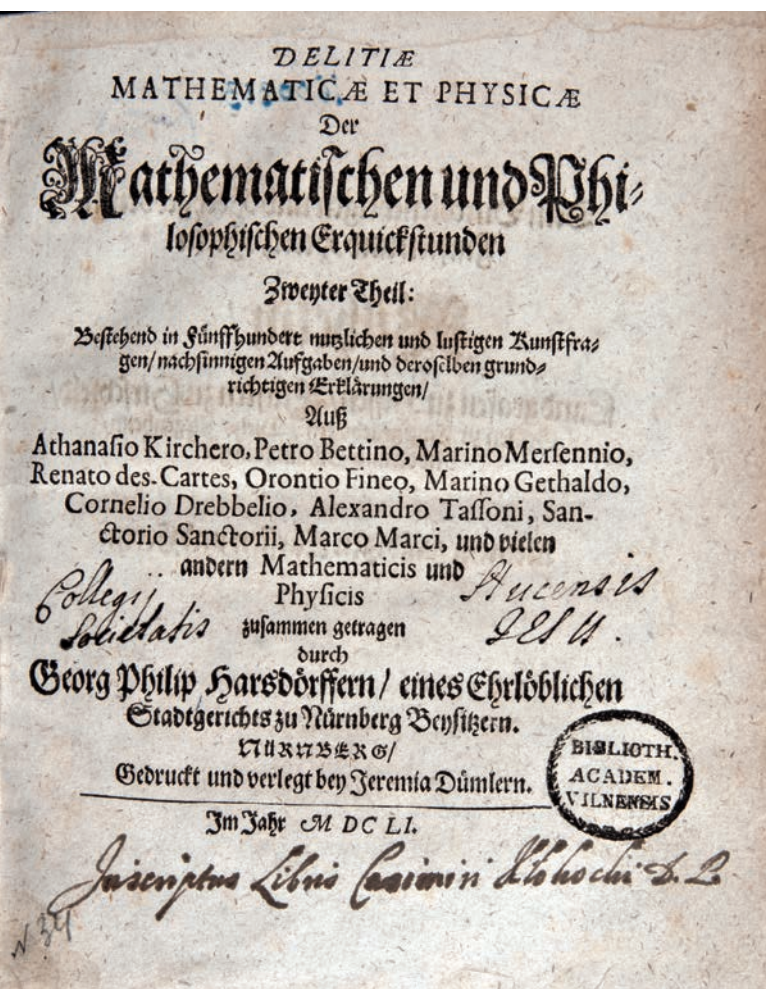 DELITIÆ
MATHEMATICÆ ET PHYSICÆ
Der
Mathematiſchen und Phi⸗
loſophiſchen Erquickſtunden
Zweyter Theil:
Beſtehend in Fünffhundert nutzlichen und luſtigen Kunſtfra⸗
gen/ nachſinnigen Aufgaben/ und deroſelben grund⸗
richtigen Erklärungen/
Auß
Athanaſio Kirchero, Petro Bettino, Marino Merſennio,
Renato des-Cartes, Orontio Fineo, Marino Gethaldo,
Cornelio Drebbelio, Alexandro Taſſoni, San-
ctorio Sanctorii, Marco Marci, und vielen
andern Mathematicis und
Phyſicis
Collegij Slucensis
Societatis JESU.
zuſammen getragen
durch
Georg Philip Harsdörffern/ eines Ehrlöblichen
Stadtgerichts zu Nürnberg Beyſitzern.
NÜRNBERG/
Gedruckt und verlegt bey Jeremia Dümlern.
BIBLIOTH.
ACADEM.
VILNENSIS
Im Jahr M DC LI.
Inscriptus Libris Casimiri
N 34